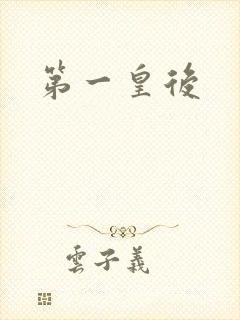 第一皇後
雲子義